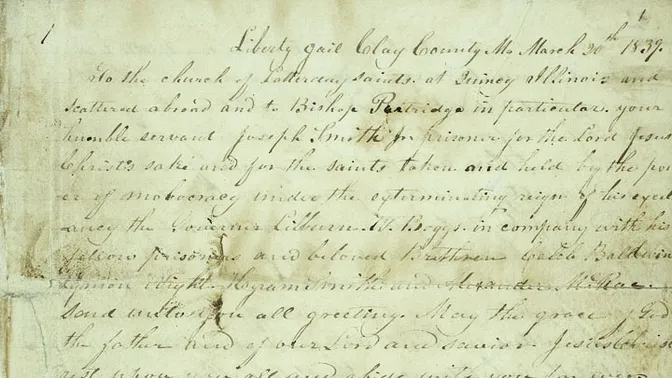 1 1
Liberty gail Clay County Mo March 20th 1839.
To the church of Latterday saints at Quincy Illinois and
scattered abroad and to Bishop Partridge in particular. your
humble servant Joseph Smith Jr prisoner for the Lord Jesus
Christ's sake and for the saints taken and held by the pow
er of mobocracy under the exterminating reign of his excel
ancy the Governer Lilburn W. Boggs in company with his
fellow prisoners and beloved Brethren Caleb Baldwin
Lymon Wight. Hyram Smith and Alexander McRae.
Send unto you all greeting. May the grace of God
the father and of our Lord and savior Jesus Christ
rest upon you all and abide with you for ever